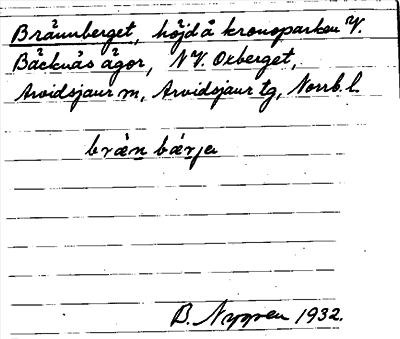 Brännberget, höjd å kronoparken V.
Bäcknäs ägor, NV. Oxberget,
Arvidsjaur sn, Arvidsjaur tg, Norrb. l.
bræ̀n bærja
B. Nygren 1932.